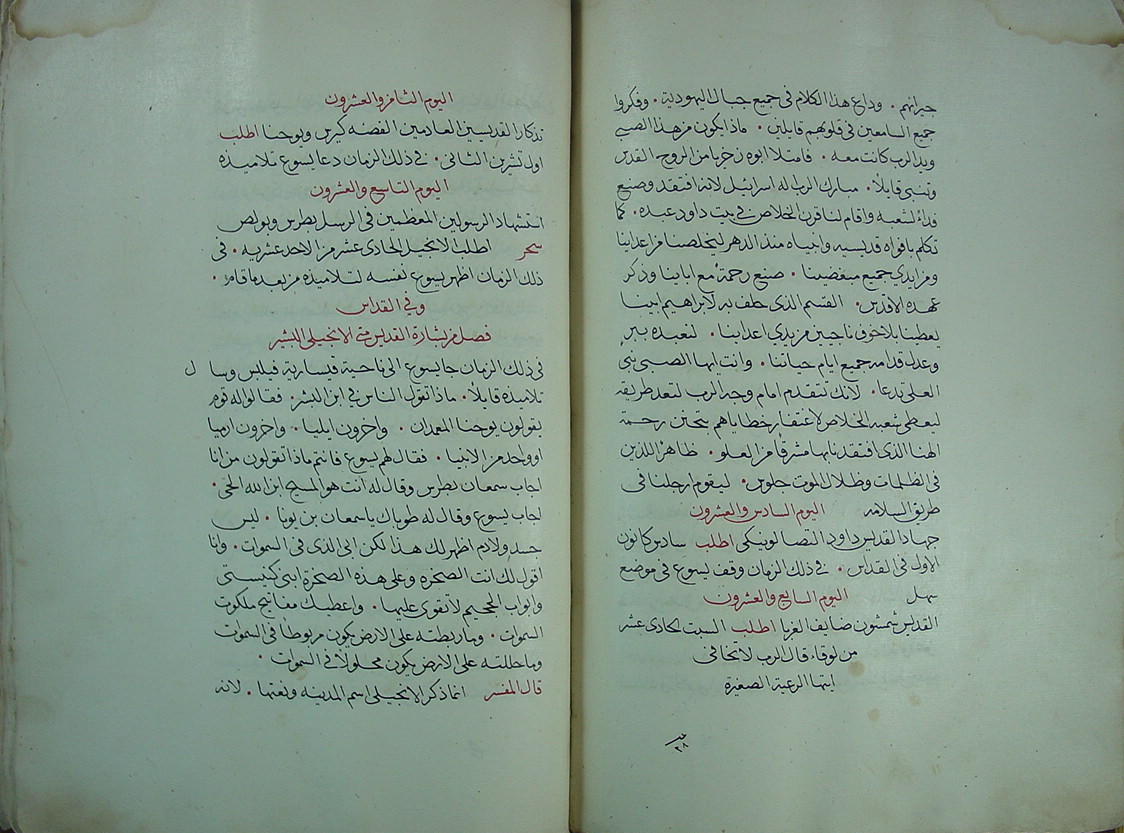 جيرانهم . وداع هذا الكلام فى جميع جبال اليهودية . وفكروا
جميع السامعين فى قلوبهم قايلين . ماذا يكون من هذا الصبى
ويد الرب كانت معه . فامتلا ابوه زخريا من الروح القدس
وتنبى قايلاً . مبارك الرب اله اسرائيل لانه افتقد وصنع
فداءً لشعبه واقام لنا قرن الخلاص فى بيت داود عبده . كما
تكلم بافواه قديسيه وانبياه منذ الدهر ليخلصنا من اعداينا
ومن ايدي جميع مبغضينا . صنيع رحمةً مع ابآينا وذكر
عهده الاقدس . القسم الذى حلف به لابراهيم ابينا
يعطينا بلا خوف ناجيين من يدي اعداينا . لنعبده ببر
وعدل قدامه جميع ايام حياتنا . وانت ايها الصبى نبى
العلى تدعا . لانك تتقدم امام وجه الرب لتعد طريقه
ليعطى شعبه الخلاص لاغتفار خطاياهم بتحنن رحمة
الهنا الذى افتقدنا بها مشرقا من العلو . ظاهراً للذين
فى الظلمات وظلال الموت جلوس . ليقوم ارجلنا فى
طريق السلامه اليوم السادس والعشرون
جهاد القديس داود التصالونيكى اطلب سادس كانون
الاول فى القداس . فى ذلك الزمان وقف يسوع فى موضع
سهل اليوم السابع والعشرون
القديس شمشون ضايف الغربا اطلب السبت الحادى عشر
من لوقا، قال الرب لا تخافى
ايتها الرعية الصغيرة
٢٨
اليوم الثامن والعشرون
تذكار القديسين العادمين الفضه كيرس ويوحنا اطلب
اول تشرين الثانى . فى ذلك الزمان دعا يسوع تلاميذه
اليوم التاسع والعشرون
استشهاد الرسولين المعظمين فى الرسل بطرس وبولص
سحر اطلب الانجيل الحادى عشر من الاحد عشريه . فى
ذلك الزمان اظهر يسوع نفسه لتلاميذه من بعد ما قام .
وفى القداس
فصل من بشارة القديس متى الانجيلى البشير
فى ذلك الزمان جا يسوع الى ناحية قيسارية فيلبس وسا ل
تلاميذه قايلاً . ماذا تقول الناس فى ابن البشر . فقالوا له قوم
يقولون يوحنا المعمدان . واخرون ايليا . واخرون ارميا
او واحد من الانبيا . فقال لهم يسوع فانتم ماذا تقولون من انا
اجاب سمعان بطرس وقال له انت هو المسيح ابن الله الحى .
اجاب يسوع وقال له طوباك يا سمعان بن يونا . ليس
جسد ولا دم اظهر لك هذا لكن ابى الذى فى السموات . وانا
اقول لك انت الصخره وعلى هذه الصخرة ابنى كنيستى
وابواب الجحيم لا تقوى عليها . واعطيك مفاتيح ملكوت
السموات . وما ربطته على الارض يكون مربوطاً فى السموات
وما حللته على الارض يكون محلولاً فى السموات .
قال المفسر انما ذكر الانجيلى اسم المدينه ونعتها . لانه